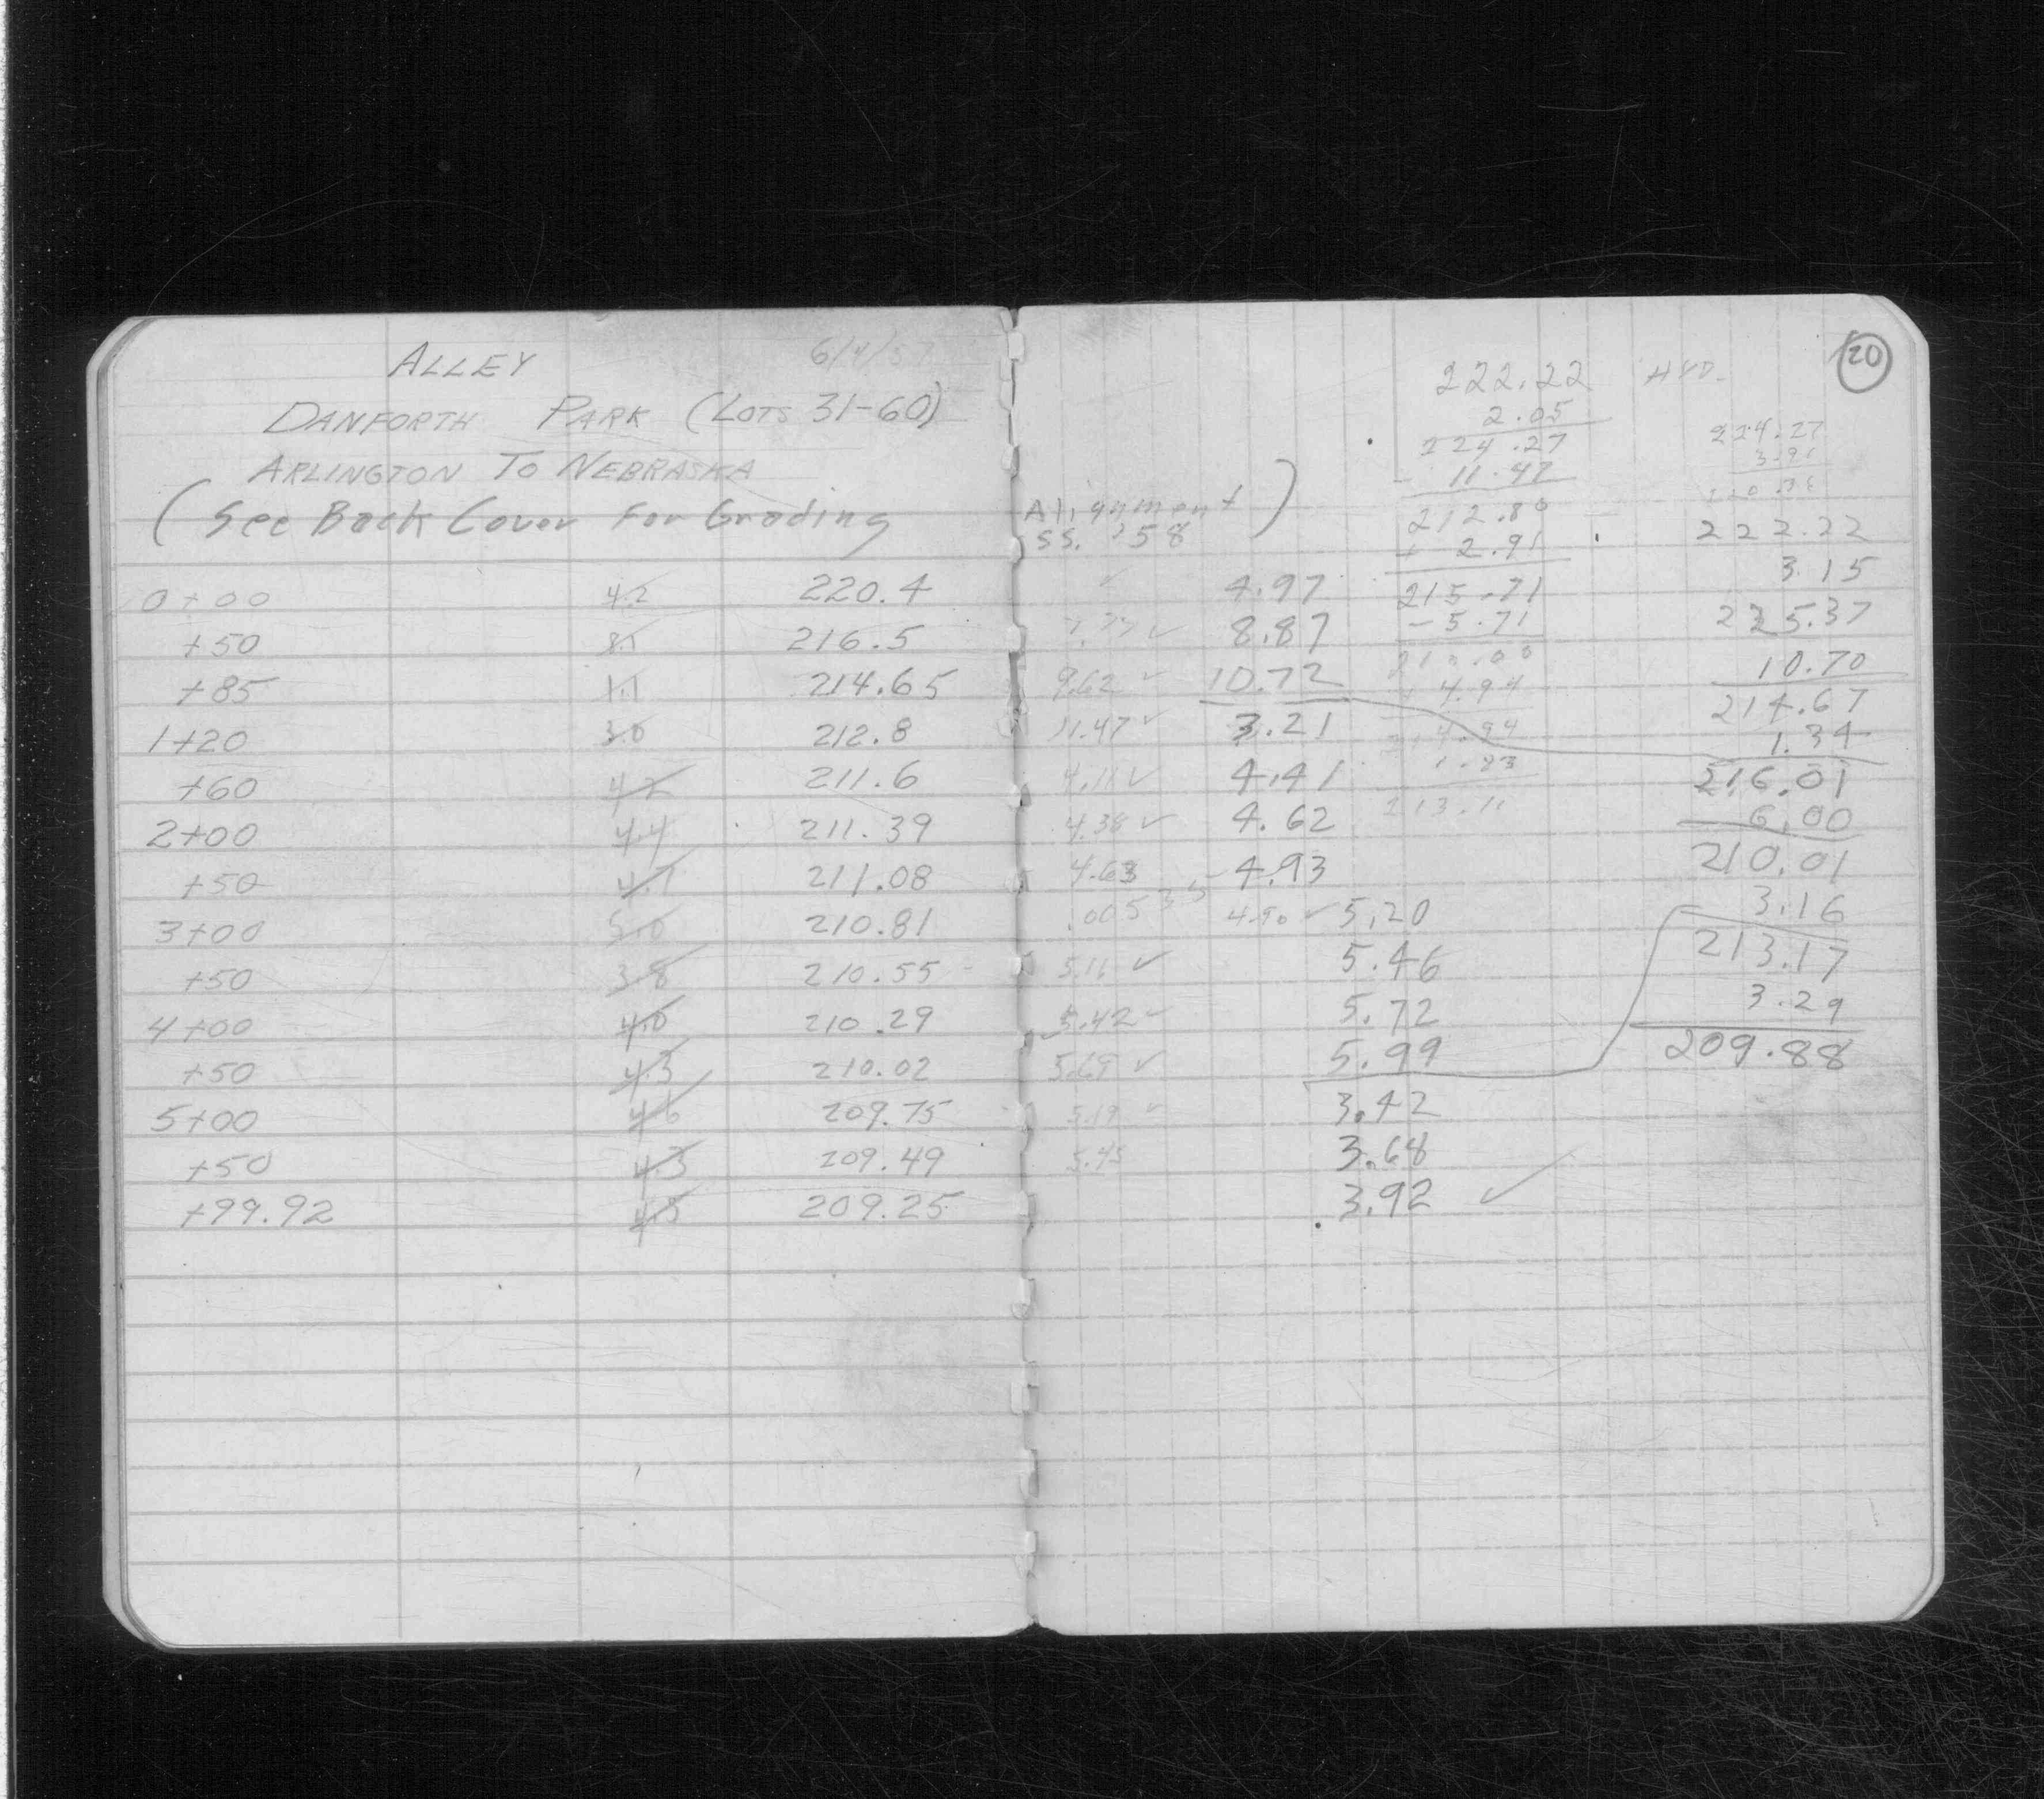 ALLEY
6/4/57
DANFORTH PARK (LOTS 31-60)
ARLINGTON TO NEBRASKA
(See Back Cover For Grading Alignment)
SS. '58
0+00 4.2 220.4 4.97
+50 8.1 216.5 8.87
+85 1.1 214.65 9.62 ✓ 10.72
1+20 3.0 212.8 11.47 ✓ 3.21
+60 4.2 211.6 4.11 ✓ 4.41
2+00 4.4 211.39 4.38 ✓ 4.62
+50 4.7 211.08 4.63 4.93
3+00 5.0 210.81 .005 4.90 ✓ 5.20
+50 3.8 210.55 5.16 ✓ 5.46
4+00 4.0 210.29 5.42 ✓ 5.72
+50 4.3 210.02 5.69 ✓ 5.99
5+00 4.6 209.75 5.19 ✓ 3.42
+50 4.3 209.49 5.45 3.68
+99.92 4.5 209.25 3.92 ✓
20
222.22 HYD.
2.05
224.27
- 11.47
212.80
+ 2.91
215.71
- 5.71
210.00
+ 4.94
214.94
1.83
213.11
224.27
3.91
222.22
3.15
225.37
10.70
214.67
1.34
216.01
6.00
210.01
3.16
213.17
3.29
209.88